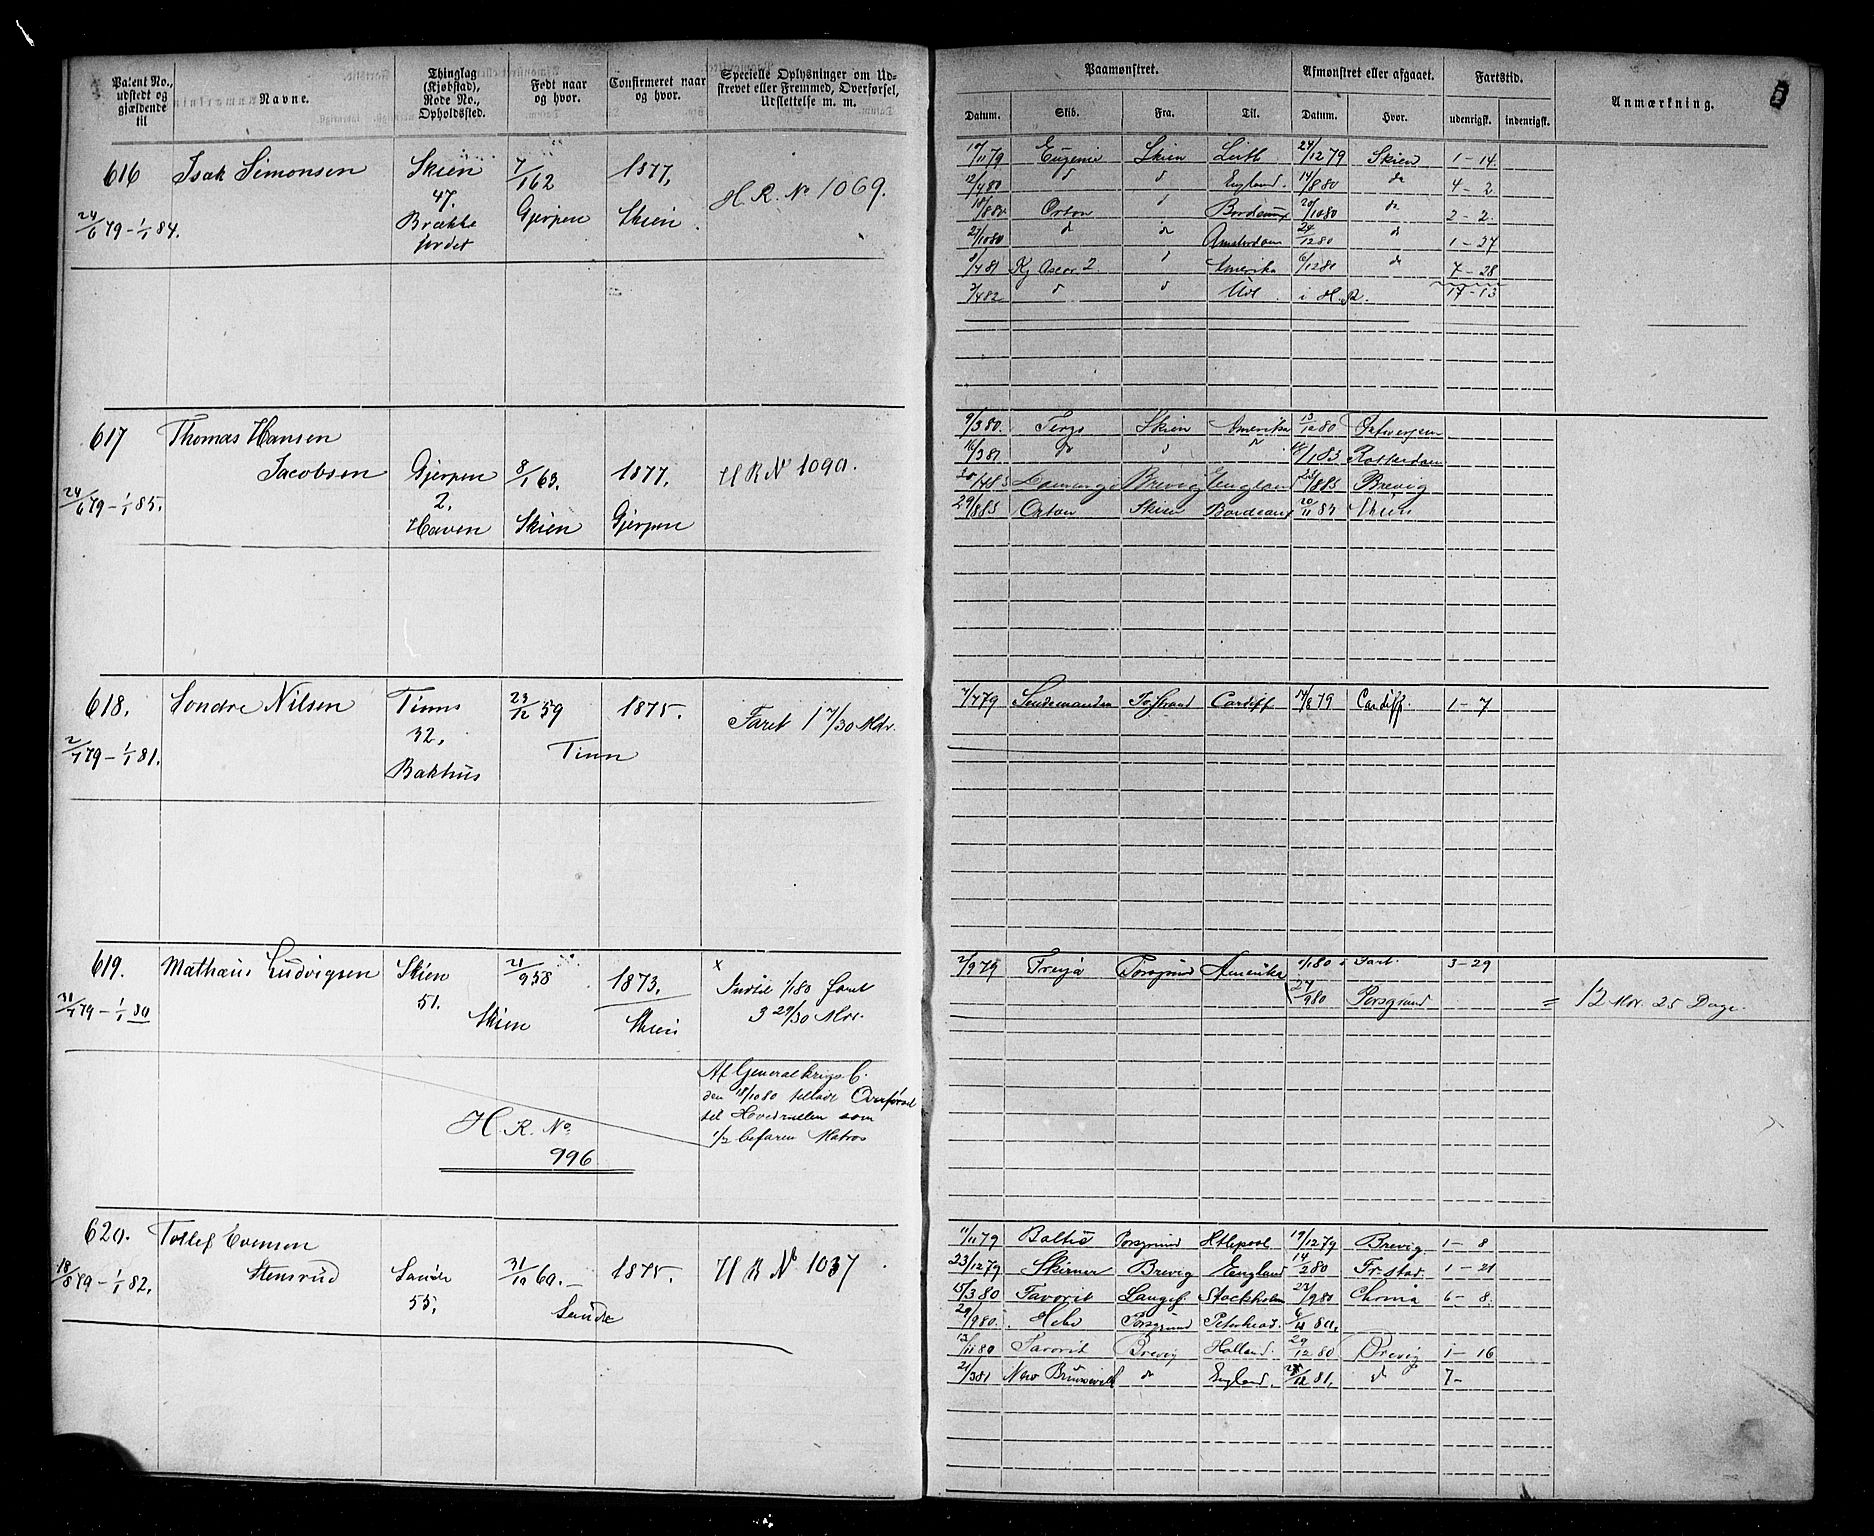 Patent No., udstedt og gjældende til
Navne.
Thinglag (Kjøbstad), Rode No., Opholdssted.
Født naar og hvor.
Confirmeret naar og hvor.
Specielle Oplysninger om Udstrevet eller Fremmed, Overførsel, Udslettelse m. m.
Paamønstret.
Afmønstret eller afgaaet.
Fartstid.
Anmærkning.
Datum.
Skib.
Fra.
Til.
Datum.
Hvor.
udenrigst.
indenrigst.
616 Isak Simonsen Skien 7/1 62 1877,
47. Gjerpen Skien H. R. No 1069.
24/6 79 – 1/1 84. Brække
jordet
10/11 79 Eugenie Skien Leith 24/12 79 Skien 1 – 14.
12/4 80 d d England. 14/8 80 do 4 – 2
18/8 80 Orion Bordeaux 20/10 80 do 2 – 2.
27/10 80 d do Amsterdam 24/12 80 d 1 – 27
8/4 81 2. Amerika 6/12 81 do 7 – 28
3/4 82 d d Udl i H. R. 17 – 13
617 Thomas Hansen
Jacobsen Gjerpen 8/1 63. 1877, H R No 1090.
24/6 79 – 1/1 85. 2.
Haven Skien Gjerpen
9/3 80. Skien Amerika 13/12 80
16/3 81 do 18/1 83 Rotterdam
Brevig England 23/8 83 Brevig
29/8 83 Orion Skien Bordeaux Skien
618. Sondre Nilsen Tinns 23/12 59 1875. Faret 1 7/30 Mdr.
32,
2/7 79 – 1/1 81. Bakhus Tinn
7/7 79 Cardiff 14/8 79 Cardiff. 1 – 7
619. Mathæus Ludvigsen Skien 21/9 58 1873, x
31/7 79 – 1/1 80 51. Skien Skien Indtil 1/1 80 faret
3 29/30 Mdr.
Af Generalkrigs C.
den 18/10 80 tilladt Overført
til Hovedrullen som
1/2 befaren Matros
H. R. No.
996
2/9 79 Freya Porsgrund Amerika 1/1 80 Fart. 3 – 29
27/9 80 Porsgrund = 12 Mdr. 25 Dage.
620. Tollef Evensen
Stensrud Saude 31/10 60. 1875. H R No 1037
18/8 79 – 1/1 82. 55, Saude
11/11 79 Baltic Porsgrund Htlepool 19/12 79 Brevig 1 – 8
23/12 79 Skirner Brevig England 14/2 80 Fr.stad 1 – 21
15/3 80 Favorit Langes. Stockholm 22/9 80 6 – 8.
29/9 80. Hebe Porsgrund Peterhead.
13/11 80 Favorit Brevig Holland. 29/12 80 Brevig 1 – 16
21/3 81 New Brunswick do England. d 7 –